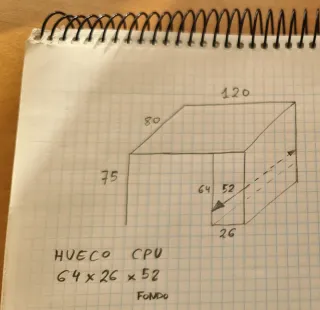 120
80
75
64 52
26
HUECO CPU
64 x 26 x 52
FONDO